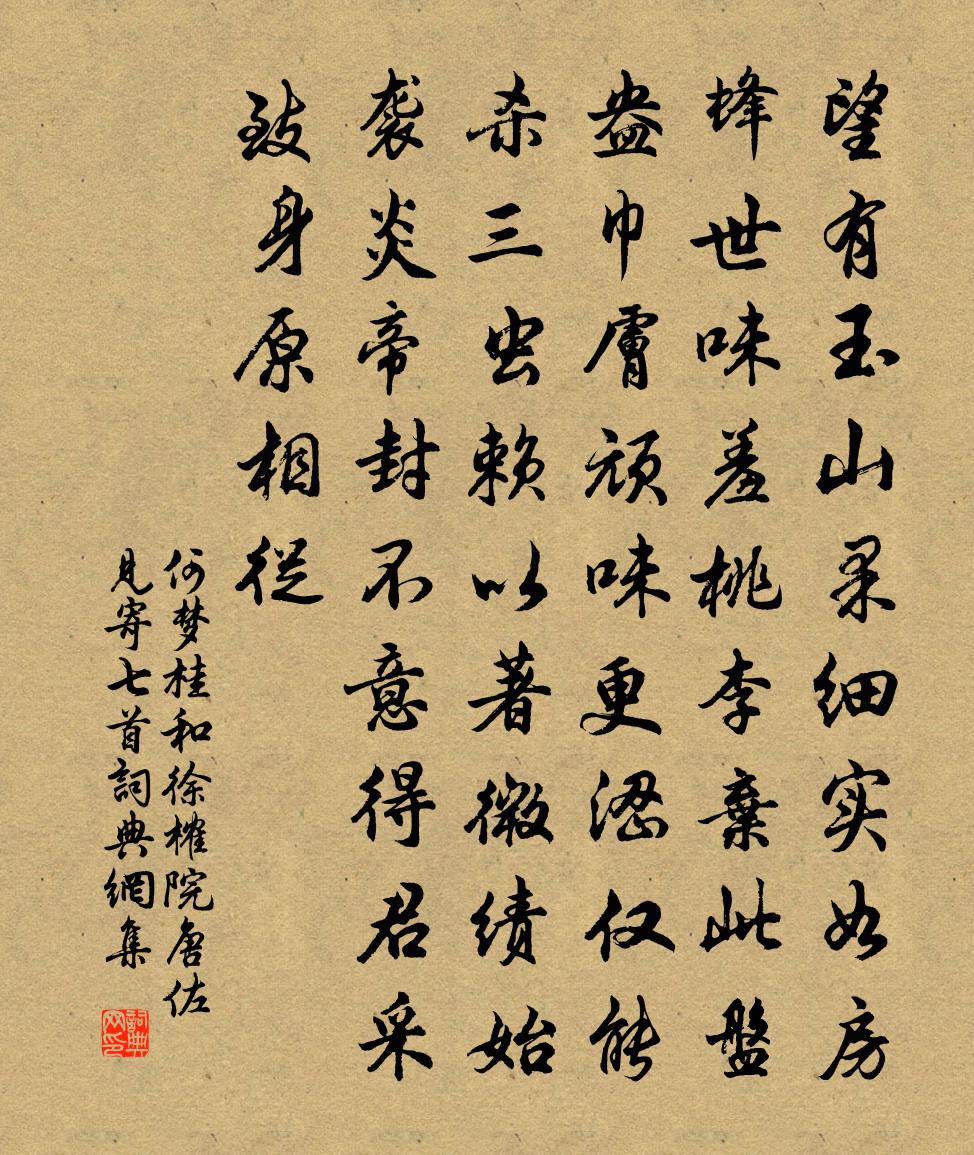 望有玉山果细实如房
蜂世味羞桃李棄此盤
盎巾膚頑味更涩仅能
杀三虫赖以著微绩始
袭炎帝封不意得君采
致身原相從
何梦桂和徐榷院唐佐
見寄七首詞典網集
詞典
网印